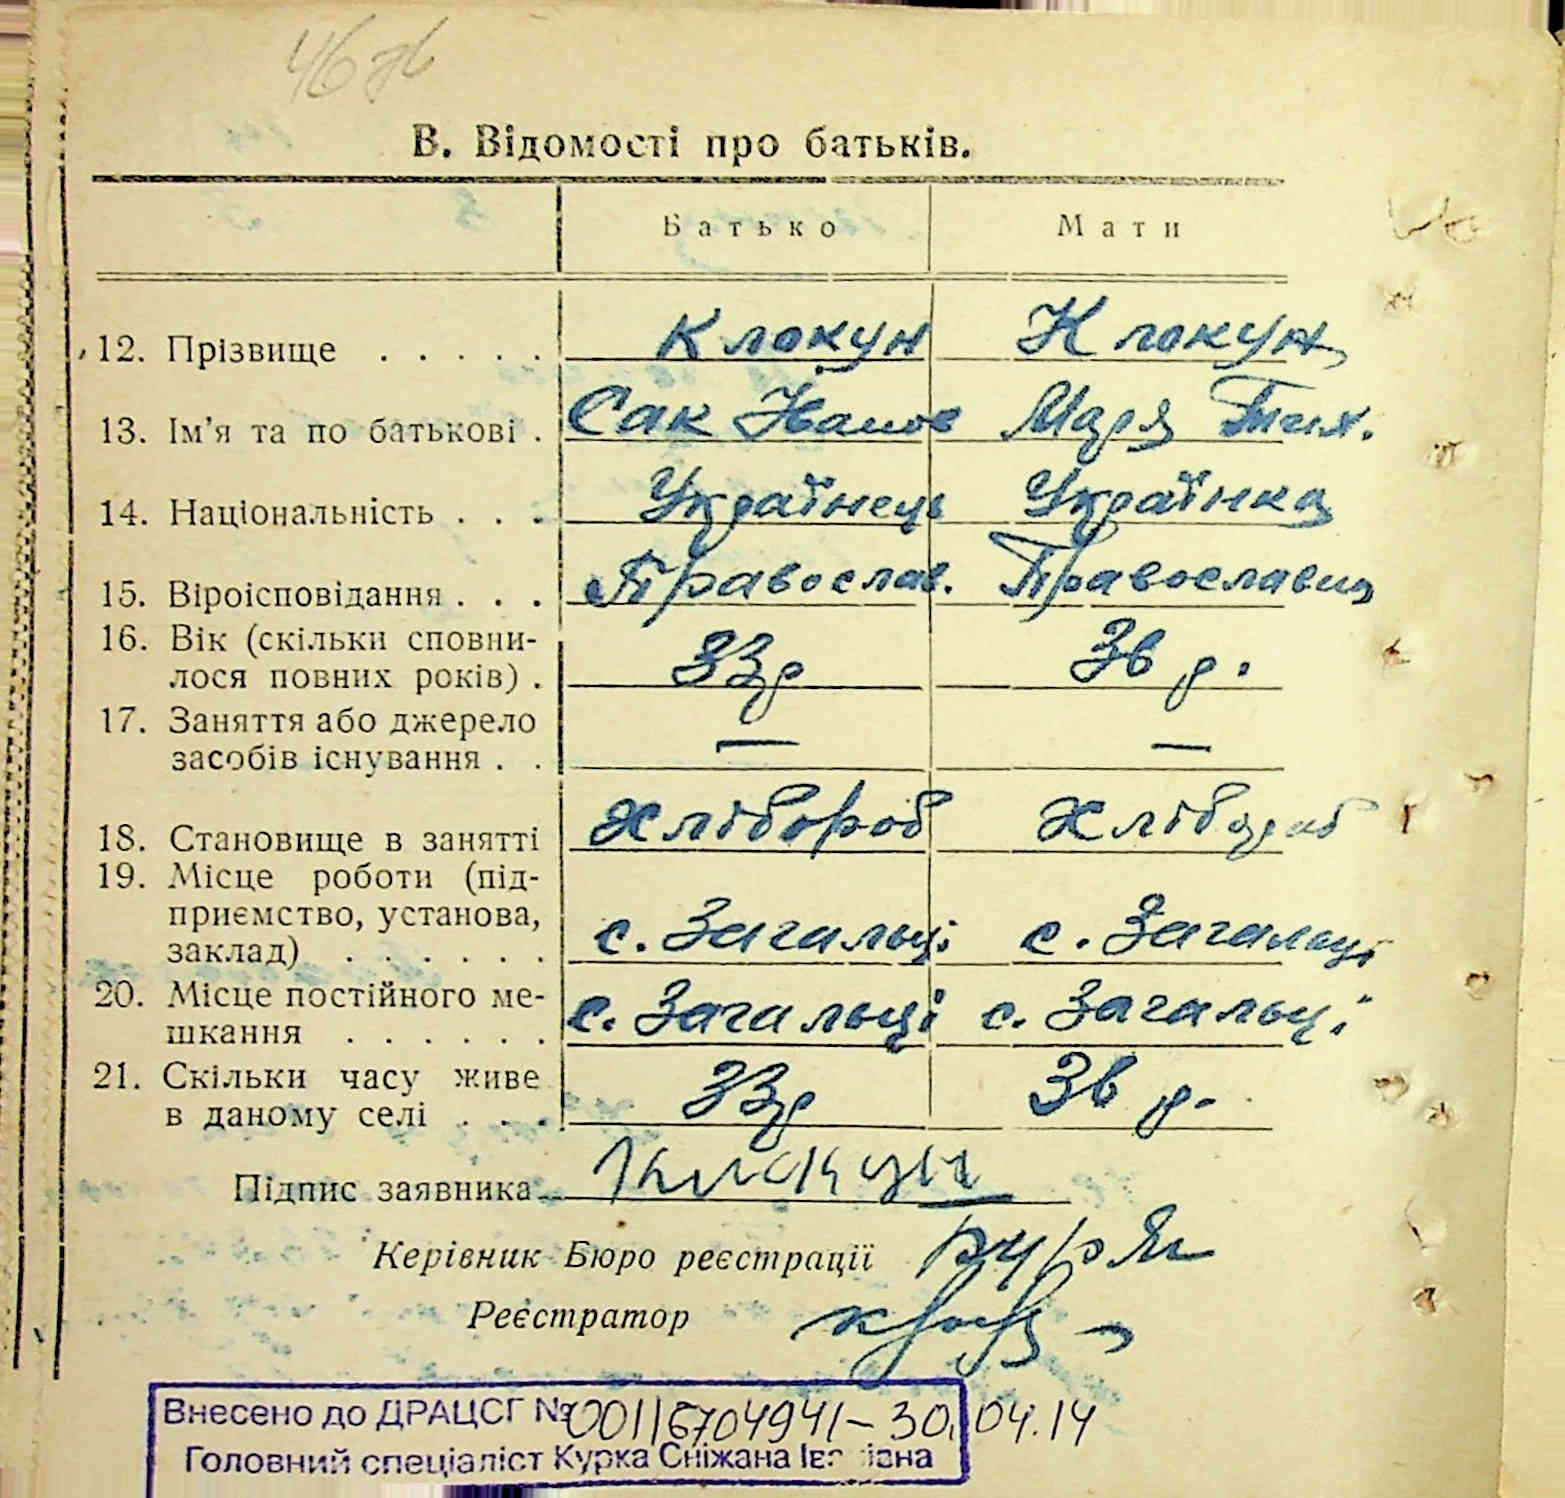 В. Відомості про батьків.
Батько Мати
12. Прізвище . . . . . Клокун Клокун
13. Ім’я та по батькові . Сак Іванов Маря Тих.
14. Національність . . . Українець Українка
15. Віроісповідання . . . Православ. Православна
16. Вік (скільки сповни-
лося повних років) . 33р 36 р.
17. Заняття або джерело
засобів існування . . — —
18. Становище в занятті хлібороб хлібороб
19. Місце роботи (під-
приємство, установа,
заклад) . . . . . . с. Загальці с. Загальці
20. Місце постійного ме-
шкання . . . . . . с. Загальці с. Загальці
21. Скільки часу живе
в даному селі . . . 33р 36 р.
Підпис заявника Клокун
Керівник Бюро реєстрації
Реєстратор
Внесено до ДРАЦСГ № 00116704941-30.04.14
Головний спеціаліст Курка Сніжана